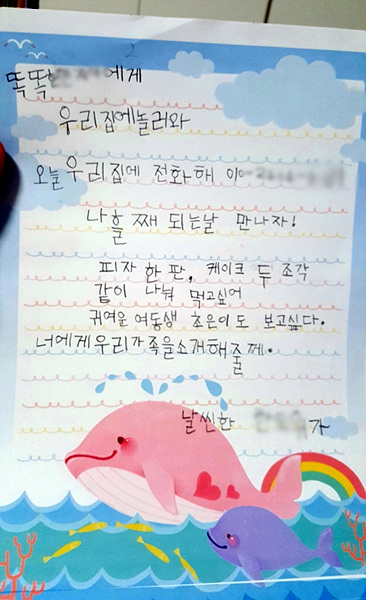 똑똑한 에게
우리집에놀러와
오늘우리집에 전화해
나흘 째 되는날 만나자!
피자 한 판, 케이크 두 조각
같이 나눠 먹고싶어
귀여운 여동생 초은이도 보고싶다.
너에게우리가족을소개해줄께.
날씬한 가